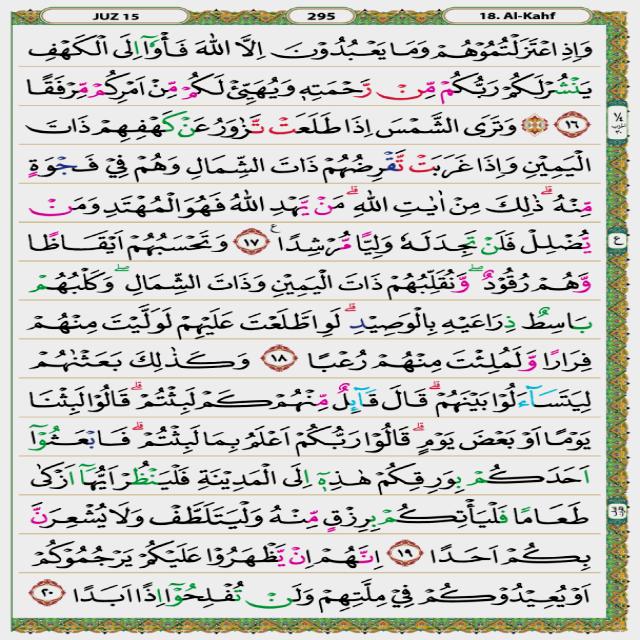 JUZ 15
295
18. Al-Kahf
وَاِذِ اعْتَزَلْتُمُوْهُمْ وَمَا يَعْبُدُوْنَ اِلَّا اللّٰهَ فَأْوٗٓا اِلَى الْكَهْفِ
يَنْشُرْ لَكُمْ رَبُّكُمْ مِّنْ رَّحْمَتِهٖ وَيُهَيِّئْ لَكُمْ مِّنْ اَمْرِكُمْ مِّرْفَقًا
١٦ وَتَرَى الشَّمْسَ اِذَا طَلَعَتْ تَّزٰوَرُ عَنْ كَهْفِهِمْ ذَاتَ
الْيَمِيْنِ وَاِذَا غَرَبَتْ تَّقْرِضُهُمْ ذَاتَ الشِّمَالِ وَهُمْ فِيْ فَجْوَةٍ
مِّنْهُ ۗ ذٰلِكَ مِنْ اٰيٰتِ اللّٰهِ ۗ مَنْ يَّهْدِ اللّٰهُ فَهُوَ الْمُهْتَدِ وَمَنْ
يُّضْلِلْ فَلَنْ تَجِدَ لَهٗ وَلِيًّا مُّرْشِدًا ࣖ ١٧ وَتَحْسَبُهُمْ اَيْقَاظًا
وَّهُمْ رُقُوْدٌ ۖ وَّنُقَلِّبُهُمْ ذَاتَ الْيَمِيْنِ وَذَاتَ الشِّمَالِ ۖ وَكَلْبُهُمْ
بَاسِطٌ ذِرَاعَيْهِ بِالْوَصِيْدِ ۗ لَوِ اطَّلَعْتَ عَلَيْهِمْ لَوَلَّيْتَ مِنْهُمْ
فِرَارًا وَّلَمُلِئْتَ مِنْهُمْ رُعْبًا ١٨ وَكَذٰلِكَ بَعَثْنٰهُمْ
لِيَتَسَاۤءَلُوْا بَيْنَهُمْ ۗ قَالَ قَاۤىِٕلٌ مِّنْهُمْ كَمْ لَبِثْتُمْ ۗ قَالُوْا لَبِثْنَا
يَوْمًا اَوْ بَعْضَ يَوْمٍ ۗ قَالُوْا رَبُّكُمْ اَعْلَمُ بِمَا لَبِثْتُمْ ۗ فَابْعَثُوْٓا
اَحَدَكُمْ بِوَرِقِكُمْ هٰذِهٖٓ اِلَى الْمَدِيْنَةِ فَلْيَنْظُرْ اَيُّهَآ اَزْكٰى
طَعَامًا فَلْيَأْتِكُمْ بِرِزْقٍ مِّنْهُ وَلْيَتَلَطَّفْ وَلَا يُشْعِرَنَّ
بِكُمْ اَحَدًا ١٩ اِنَّهُمْ اِنْ يَّظْهَرُوْا عَلَيْكُمْ يَرْجُمُوْكُمْ
اَوْ يُعِيْدُوْكُمْ فِيْ مِلَّتِهِمْ وَلَنْ تُفْلِحُوْٓا اِذًا اَبَدًا ٢٠